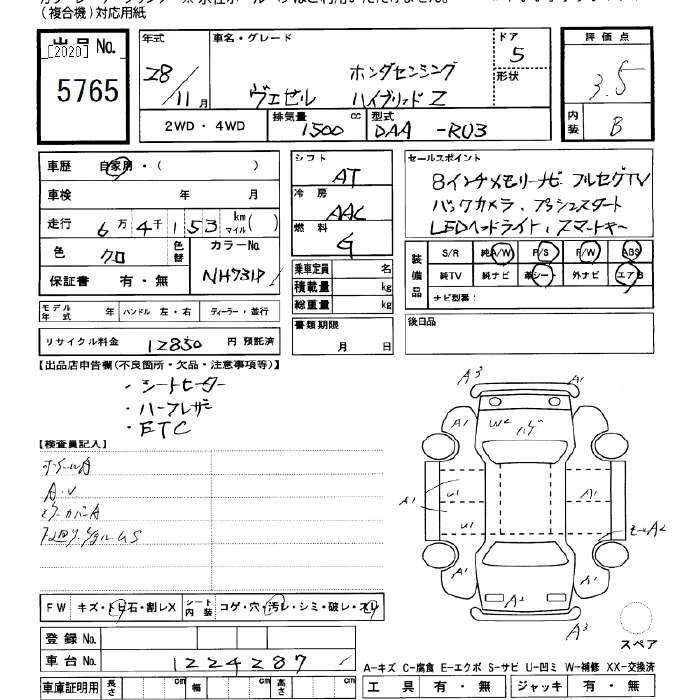 (複合機)対応用紙
出品 No.
[2020]
5765
年式
28/11月
車名・グレード
ホンダセンシング
ヴェゼル ハイブリッド Z
ドア
5
形状
評価点
3.5
内装
B
2WD・4WD
排気量
1500
cc
型式
DAA -RU3
車歴
自家用・( )
車検
年 月
走行
6万4千153 km マイル( )
色
クロ
色替
カラーNo.
NH731P
保証書
有・無
シフト
AT
冷房
AAC
燃料
G
乗車定員
名
積載量
kg
総重量
kg
書類期限
月 日
セールスポイント
8インチメモリーナビ フルセグTV
バックカメラ、プッシュスタート
LEDヘッドライト、スマートキー
装備品
S/R
純A/W
P/S
P/W
ABS
純TV
純ナビ
革シート
外ナビ
エアB
ナビ型番:
後日品
モデル年式
年
ハンドル 左・右
ディーラー・並行
リサイクル料金
12850
円 預託済
【出品店申告欄(不良箇所・欠品・注意事項等)】
・シートヒーター
・ハーフレザー
・ETC
【検査員記入】
ホイールA
A・U
FW
キズ・トビ石・割レX
シート内装
コゲ・穴・汚レ・シミ・破レ・スレ
登録 No.
車台 No.
1224287
車庫証明用
長さ
cm
幅
cm
高さ
cm
A3
A1
A1
W2
ハゲ
A1
A1
U1
U1
A1
A2
A1
A1
A2
A3
スペア
A−キズ C−腐食 E−エクボ S−サビ U−凹ミ W−補修 XX−交換済
工具
有・無
ジャッキ
有・無